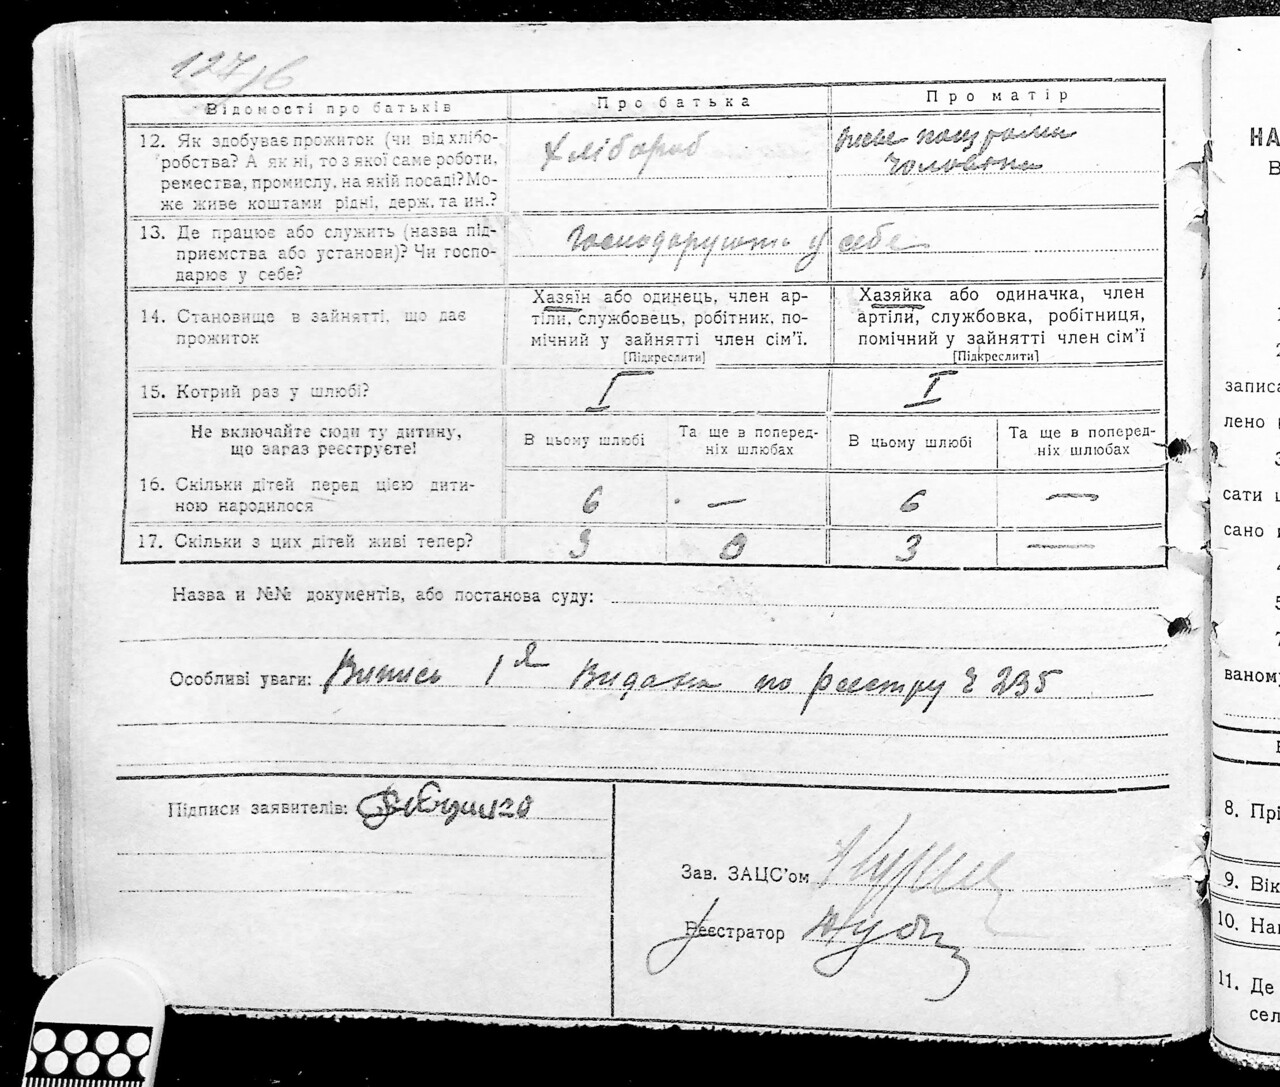 127/б
Відомості про батьків
Про батька
Про матір
12. Як здобуває прожиток (чи від хлібо-
робства? А як ні, то з якої саме роботи,
ремества, промислу, на якій посаді? Мо-
же живе коштами рідні, держ. та ин.?
Хлібороб
живе коштами
чоловіка
13. Де працює або служить (назва під-
приємства або установи)? Чи госпо-
дарює у себе?
у себе
14. Становище в зайнятті, що дає
прожиток
Хазяїн або одинець, член ар-
тіли, службовець, робітник, по-
мічний у зайнятті член сім'ї.
[Підкреслити]
Хазяйка або одиначка, член
артіли, службовка, робітниця,
помічний у зайнятті член сім'ї
[Підкреслити]
15. Котрий раз у шлюбі?
I
I
Не включайте сюди ту дитину,
що загаз реєструєте!
В цьому шлюбі
Та ще в поперед-
ніх шлюбах
В цьому шлюбі
Та ще в поперед-
ніх шлюбах
16. Скільки дітей перед цією дити-
ною народилося
6 — 6 —
17. Скільки з цих дітей живі тепер?
3 0 3 —
Назва и №№ документів, або постанова суду:
Особливі уваги: Випись 1я Видана по реєстру № 235
Підписи заявителів:
Зав. ЗАЦС'ом
Реєстратор
НА
В
записа
лено
сати
сано
ваному
8. Прі
9. Вік
10. На
11. Де
сел